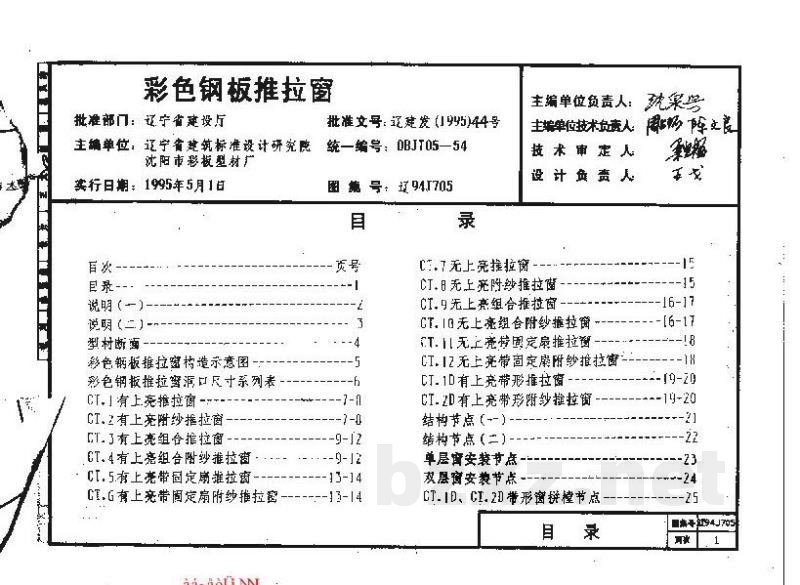 彩色钢板推拉窗
批准部门：辽宁省建设厅
批准文号：辽建发(1995)44号
主编单位：辽宁省建筑标准设计研究院
沈阳市彩板型材厂
统一编号：DBJT05-54
实行日期：1995年5月1日
图集号：辽94J705
主编单位负责人：
主编单位技术负责人：
技术审定人
设计负责人
目 录
目次------页号
目录------1
说明(一)------2
说明(二)------3
型材断面------4
彩色钢板推拉窗构造示意图------5
彩色钢板推拉窗洞口尺寸系列表------6
CT.1有上亮推拉窗------7-8
CT.2有上亮附纱推拉窗------7-8
CT.3有上亮组合推拉窗------9-12
CT.4有上亮组合附纱推拉窗------9-12
CT.5有上亮带固定扇推拉窗------13-14
CT.6有上亮带固定扇附纱推拉窗------13-14
CT.7无上亮推拉窗------15
CT.8无上亮附纱推拉窗------15
CT.9无上亮组合推拉窗------16-17
CT.10无上亮组合附纱推拉窗------16-17
CT.11无上亮带固定扇推拉窗------18
CT.12无上亮带固定扇附纱推拉窗------18
CT.1D有上亮带形推拉窗------19-20
CT.2D有上亮带形附纱推拉窗------19-20
结构节点(一)------21
结构节点(二)------22
单层窗安装节点------23
双层窗安装节点------24
CT.1D、CT.2D带形窗拼樘节点------25
目 录
图集号 辽94J705
页次 1